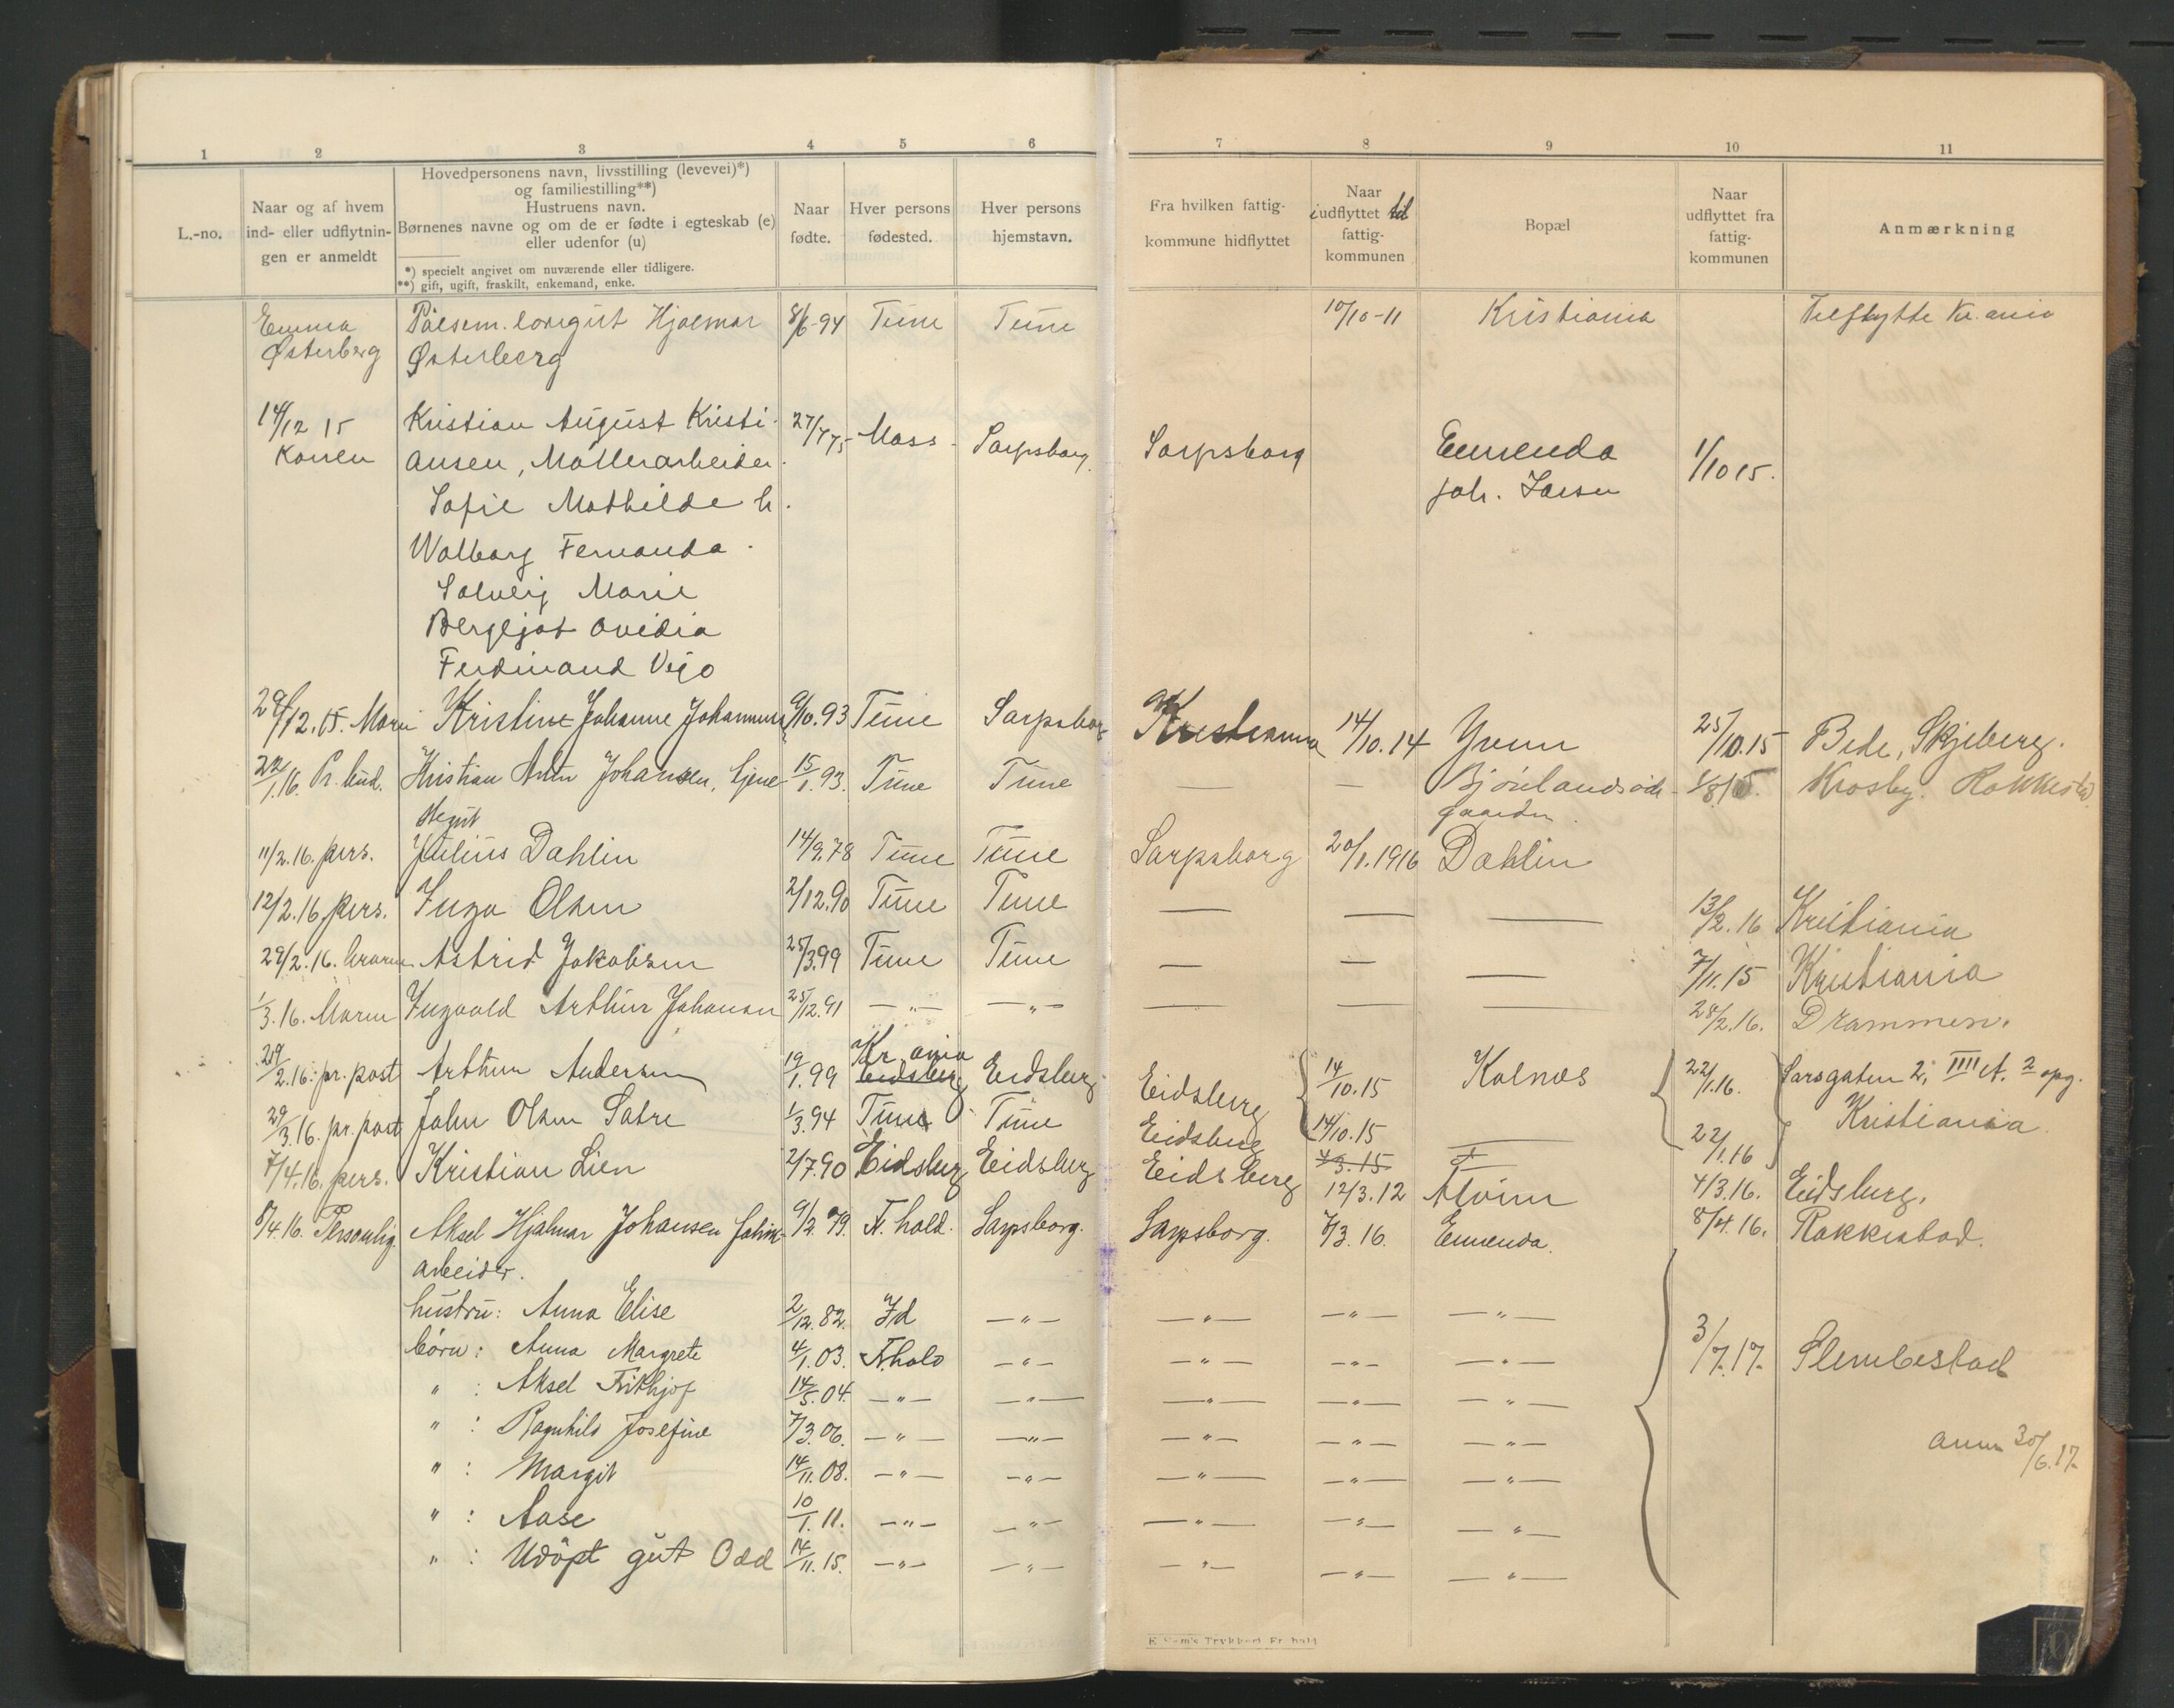 1 2 3 4 5 6 7 8 9 10 11
L.-no.
Naar og af hvem
ind- eller udflytnin-
gen er anmeldt
Hovedpersonens navn, livsstilling (levevei)*)
og familiestilling**)
Hustruens navn.
Børnenes navne og om de er fødte i egteskab (e)
eller udenfor (u)
*) specielt angivet om nuværende eller tidligere.
**) gift, ugift, fraskilt, enkemand, enke.
Naar
fødte.
Hver persons
fødested.
Hver persons
hjemstavn.
Fra hvilken fattig-
kommune hidflyttet
Naar
iudflyttet til
fattig-
kommunen
Bopæl
Naar
udflyttet fra
fattig-
kommunen
Anmærkning
Emma Hjalmar 8/6-94 Tune Tune 10/10-11 Kristiania
Østerberg Østerberg
14/12 15 Kristian August Kristi- Moss Sarpsborg Sarpsborg Ennenda 1/10 15.
Konen ansen, Møllerarbeider. Joh. Larsen
Sofie Mathilde h.
Walborg Fernanda
Solveig Marie
Bergljot Ovidia
Ferdinand Vigo
29/12.15. Kristine Johanne Johannesen 9/10.93 Tune Sarpsborg Kristiania 14/10.14 Yven 25/10.15 Bede, Skjeberg.
22/1.16. Pr. bud. Kristian Anton Johansen, tjene- 15/1.93. Tune Tune — — Krosby. Rakkestad
stegut gaarden
11/2.16. pers. Julius Dahlin 14/9.78 Tune Tune Sarpsborg 20/1.1916 Dahlin
12/2.16. pers. Inga Olsen 2/12.90 Tune Tune — — — 13/2.16 Kristiania
29/2.16. Astrid Jakobsen 25/3.99 Tune Tune — — — 7/11.15 Kristiania
1/3.16. Ingvald Arthur Johansen 25/12.91 —„— —„— — — — 28/2.16. Drammen.
29/2.16. pr. post Arthur Andersen 19/1.99 Kr.ania Eidsberg Eidsberg Eidsberg 14/10.15 Kalnes 22/1.16. Sarsgaten 2, IIII et. 2 opg.
29/3.16. pr. post John Olsen Sætre 1/3.94 Tune Tune Eidsberg 14/10.15 — 22/1.16 Kristiania.
7/4.16. pers. Kristian Lien 2/7.90 Eidsberg Eidsberg Eidsberg 4/3.15 12/3.12 Alvim 4/3.16. Eidsberg.
8/4.16. Personlig. Aksel Hjalmar Johansen 9/2.79. F.hald. Sarpsborg. Sarpsborg. 7/3.16. Ennenda. 8/4.16. Rakkestad.
arbeider.
hustru: Anna Elise 2/12.82. Id —„— —„— —„— —„—
börn: Anna Margrete 4/1.03. F.hald —„— —„— —„— —„— 3/7.17. Slembestad
„ : Aksel Frithjof 14/5.04. —„— —„— —„— —„— —„—
„ : Ragnhild Josefine 7/3.06. —„— —„— —„— —„— —„— anm 30/6.17.
„ : Margit 14/11.08. —„— —„— —„— —„— —„—
„ : Aase 10/1.11. —„— —„— —„— —„— —„—
„ : Udöpt gut Odd 14/11.15. —„— —„— —„— —„— —„—